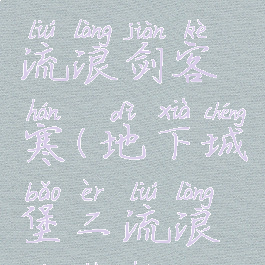 liú làng jiàn kè
流浪剑客
hán dì xià chéng
寒(地下城
bǎo èr liú làng
堡二流浪